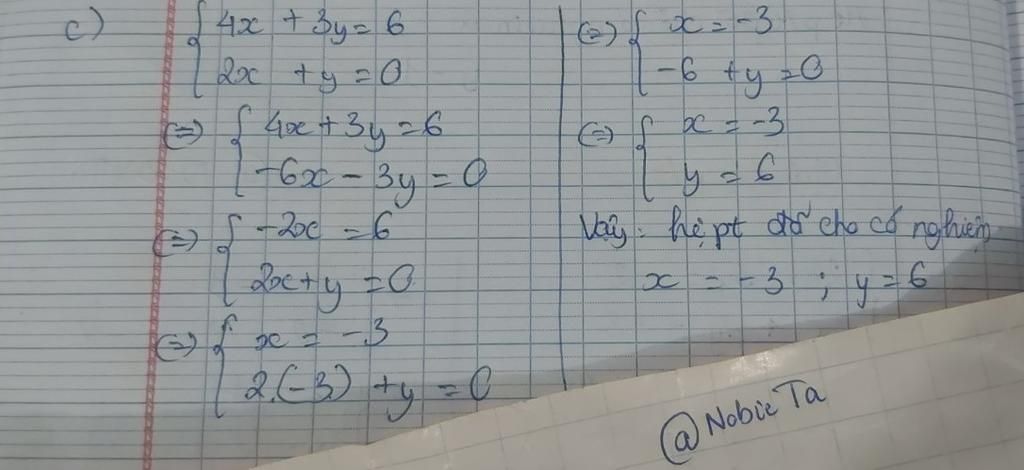 c) { 4x + 3y = 6
2x + y = 0
(=) { 4x + 3y = 6
-6x - 3y = 0
(=) { -2x = 6
2x + y = 0
(=) { x = -3
2.(-3) + y = 0
(=) { x = -3
-6 + y = 0
(=) { x = -3
y = 6
Vậy: hệ pt đã cho có nghiệm
x = -3 ; y = 6
@Nobie Ta